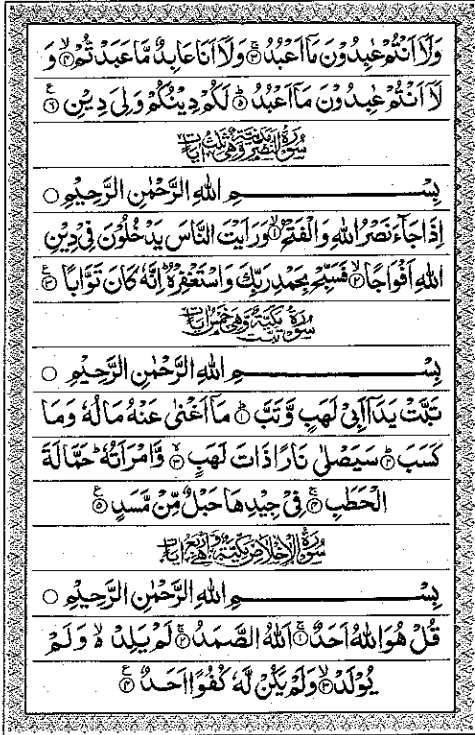 وَلَاۤ اَنْتُمْ عٰبِدُوْنَ مَاۤ اَعْبُدُ ۚ‏﴿۳﴾ وَلَاۤ اَنَا عَابِدٌ مَّا عَبَدْتُّمْ ۙ﴿۴﴾ وَ
لَاۤ اَنْتُمْ عٰبِدُوْنَ مَاۤ اَعْبُدُ ؕ﴿۵﴾ لَكُمْ دِيْنُكُمْ وَلِىَ دِيْنِ ﴿۶﴾ ع
سُوْرَةُ النَّصْرِ مَدَنِيَّةٌ وَّهِيَ ثَلٰثُ اٰيَاتٍ
بِسْمِ اللهِ الرَّحْمٰنِ الرَّحِيْمِ ○
اِذَا جَآءَ نَصْرُ اللهِ وَالْفَتْحُ ۙ﴿۱﴾ وَرَاَيْتَ النَّاسَ يَدْخُلُوْنَ فِىْ دِيْنِ
اللهِ اَفْوَاجًا ۙ﴿۲﴾ فَسَبِّحْ بِحَمْدِ رَبِّكَ وَاسْتَغْفِرْهُ ؕ اِنَّهٗ كَانَ تَوَّابًا ﴿۳﴾ ع
سُوْرَةُ تَبَّتْ مَكِّيَّةٌ وَّهِيَ خَمْسُ اٰيَاتٍ
بِسْمِ اللهِ الرَّحْمٰنِ الرَّحِيْمِ ○
تَبَّتْ يَدَاۤ اَبِىْ لَهَبٍ وَّتَبَّ ؕ﴿۱﴾ مَاۤ اَغْنٰى عَنْهُ مَالُهٗ وَمَا
كَسَبَ ؕ﴿۲﴾ سَيَصْلٰى نَارًا ذَاتَ لَهَبٍ ۙ﴿۳﴾ وَّامْرَاَتُهٗ ؕ حَمَّالَةَ
الْحَطَبِ ۚ﴿۴﴾ فِىْ جِيْدِهَا حَبْلٌ مِّنْ مَّسَدٍ ﴿۵﴾ ع
سُوْرَةُ الْاِخْلَاصِ مَكِّيَّةٌ وَّهِيَ اَرْبَعُ اٰيَاتٍ
بِسْمِ اللهِ الرَّحْمٰنِ الرَّحِيْمِ ○
قُلْ هُوَ اللهُ اَحَدٌ ۚ﴿۱﴾ اَللهُ الصَّمَدُ ۚ﴿۲﴾ لَمْ يَلِدْ ۙ وَلَمْ
يُوْلَدْ ۙ﴿۳﴾ وَلَمْ يَكُنْ لَّهٗ كُفُوًا اَحَدٌ ﴿۴﴾ ع